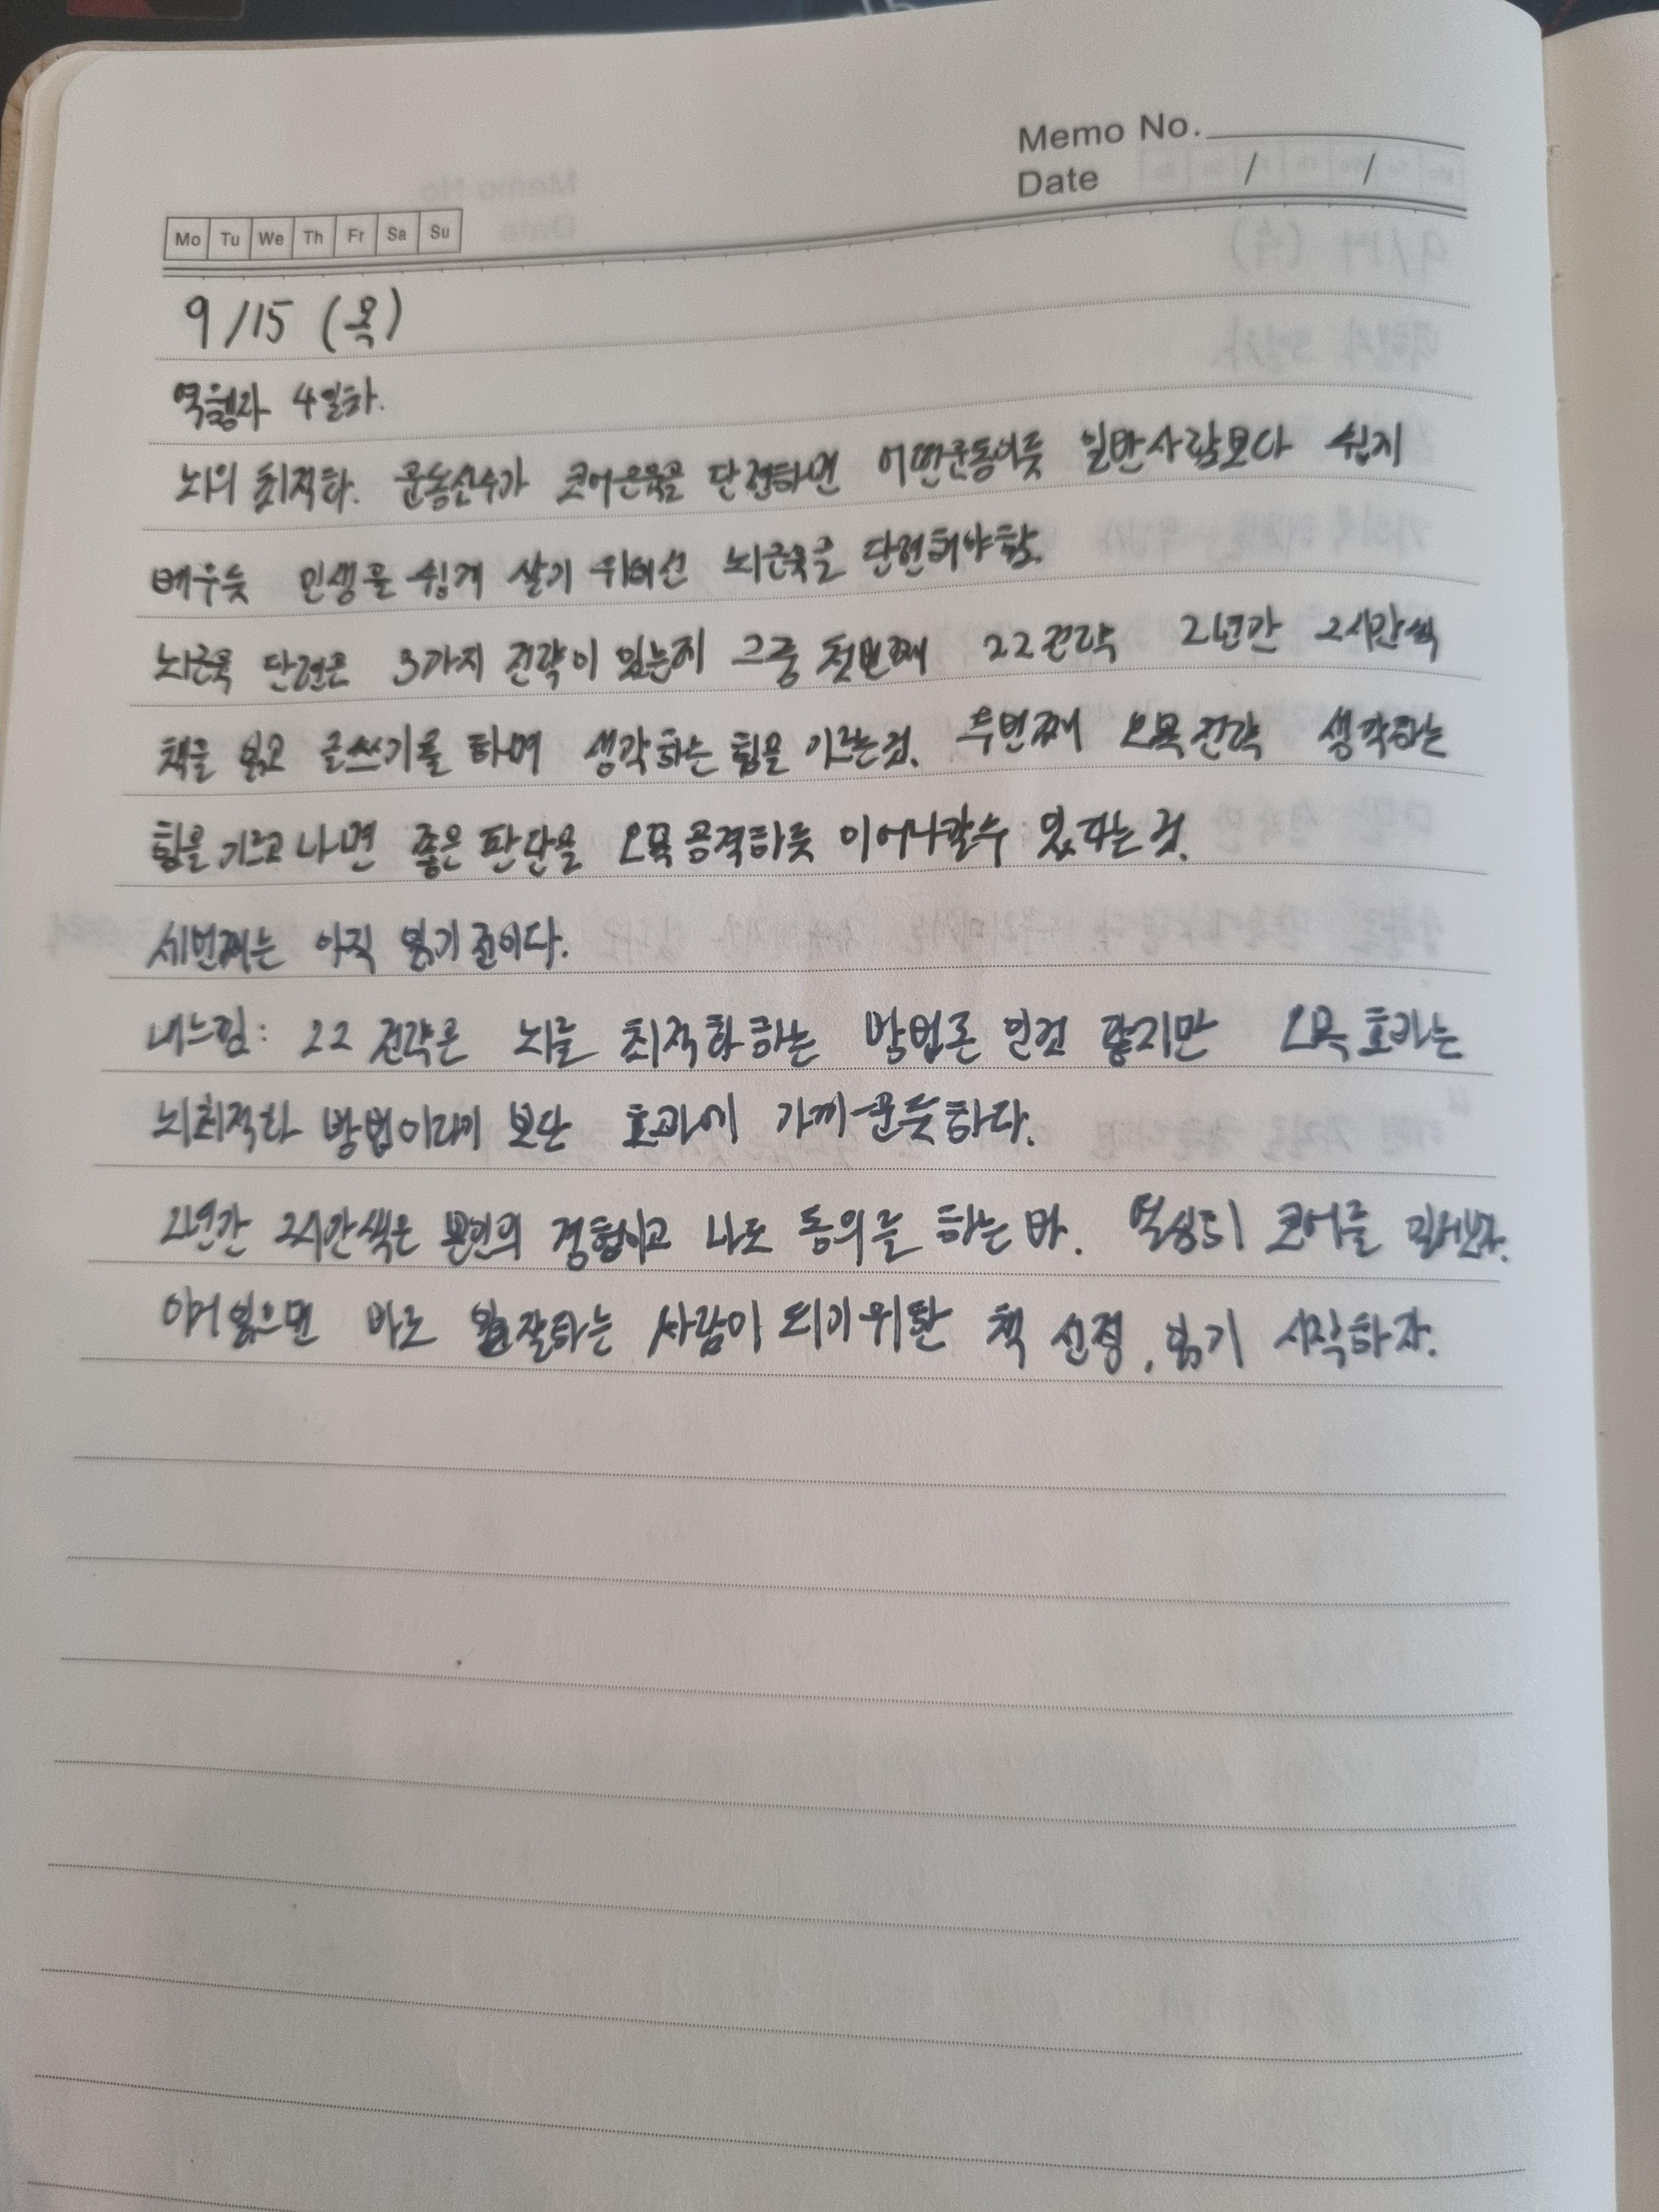 Memo No.
Date / /
Mo Tu We Th Fr Sa Su
9/15 (목)
역행자 4일차.
뇌의 최적화. 운동선수가 코어근육을 단련하면 어떤운동이듯 일반사람보다 쉽지
배우듯 인생을 쉽게 살기 위해선 뇌근육을 단련해야함.
뇌근육 단련은 3가지 전략이 있는데 그중 첫번째 22전략 2년간 2시간씩
책을 읽고 글쓰기를 하며 생각하는 힘을 기르는것. 두번째 오목전략 생각하는
힘을 기르고 나면 좋은 판단을 오목 공격하듯 이어나갈수 있다는 것.
세번째는 아직 읽기 전이다.
내느낌: 22 전략은 뇌를 최적화하는 방법론 인것 같지만 오목 효과는
뇌최적화 방법이라기 보단 효과에 가까운듯하다.
2년간 2시간씩은 본인의 경험이고 나도 동의를 하는 바. 열심히 코어를
이거 읽으면 바로 일잘하는 사람이 되기위한 책 선정, 읽기 시작하자.